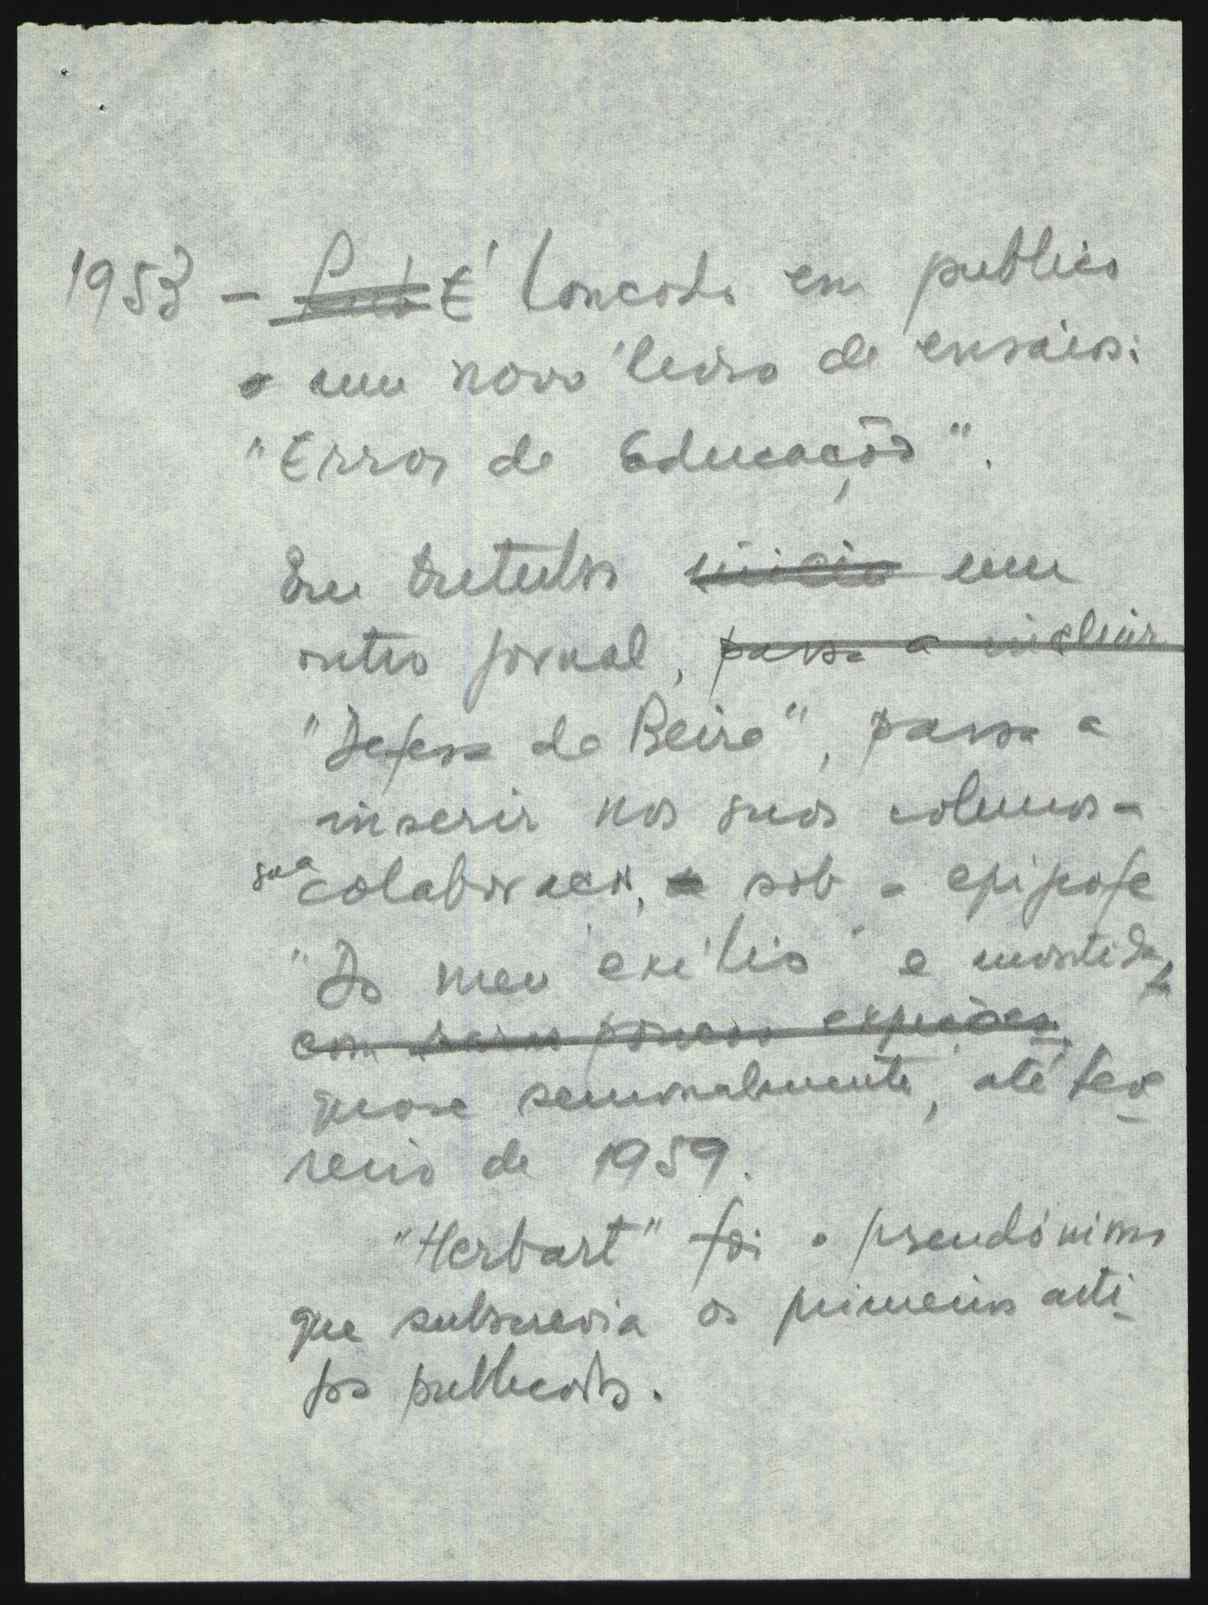 1953 - É lançado em publico
um novo livro de ensaios:
"Erros de Educação".
Em Outubro um
outro jornal, passa a incluir
"Defesa da Beira", passa a
inserir nas suas colunas a
sua colaboração, sob a epígrafe
"Do meu exílio" e mantida
com poucas
quase semanalmente, até feve-
reiro de 1959.
"Herbart" foi o pseudónimo
que subscrevia os primeiros arti-
gos publicados.